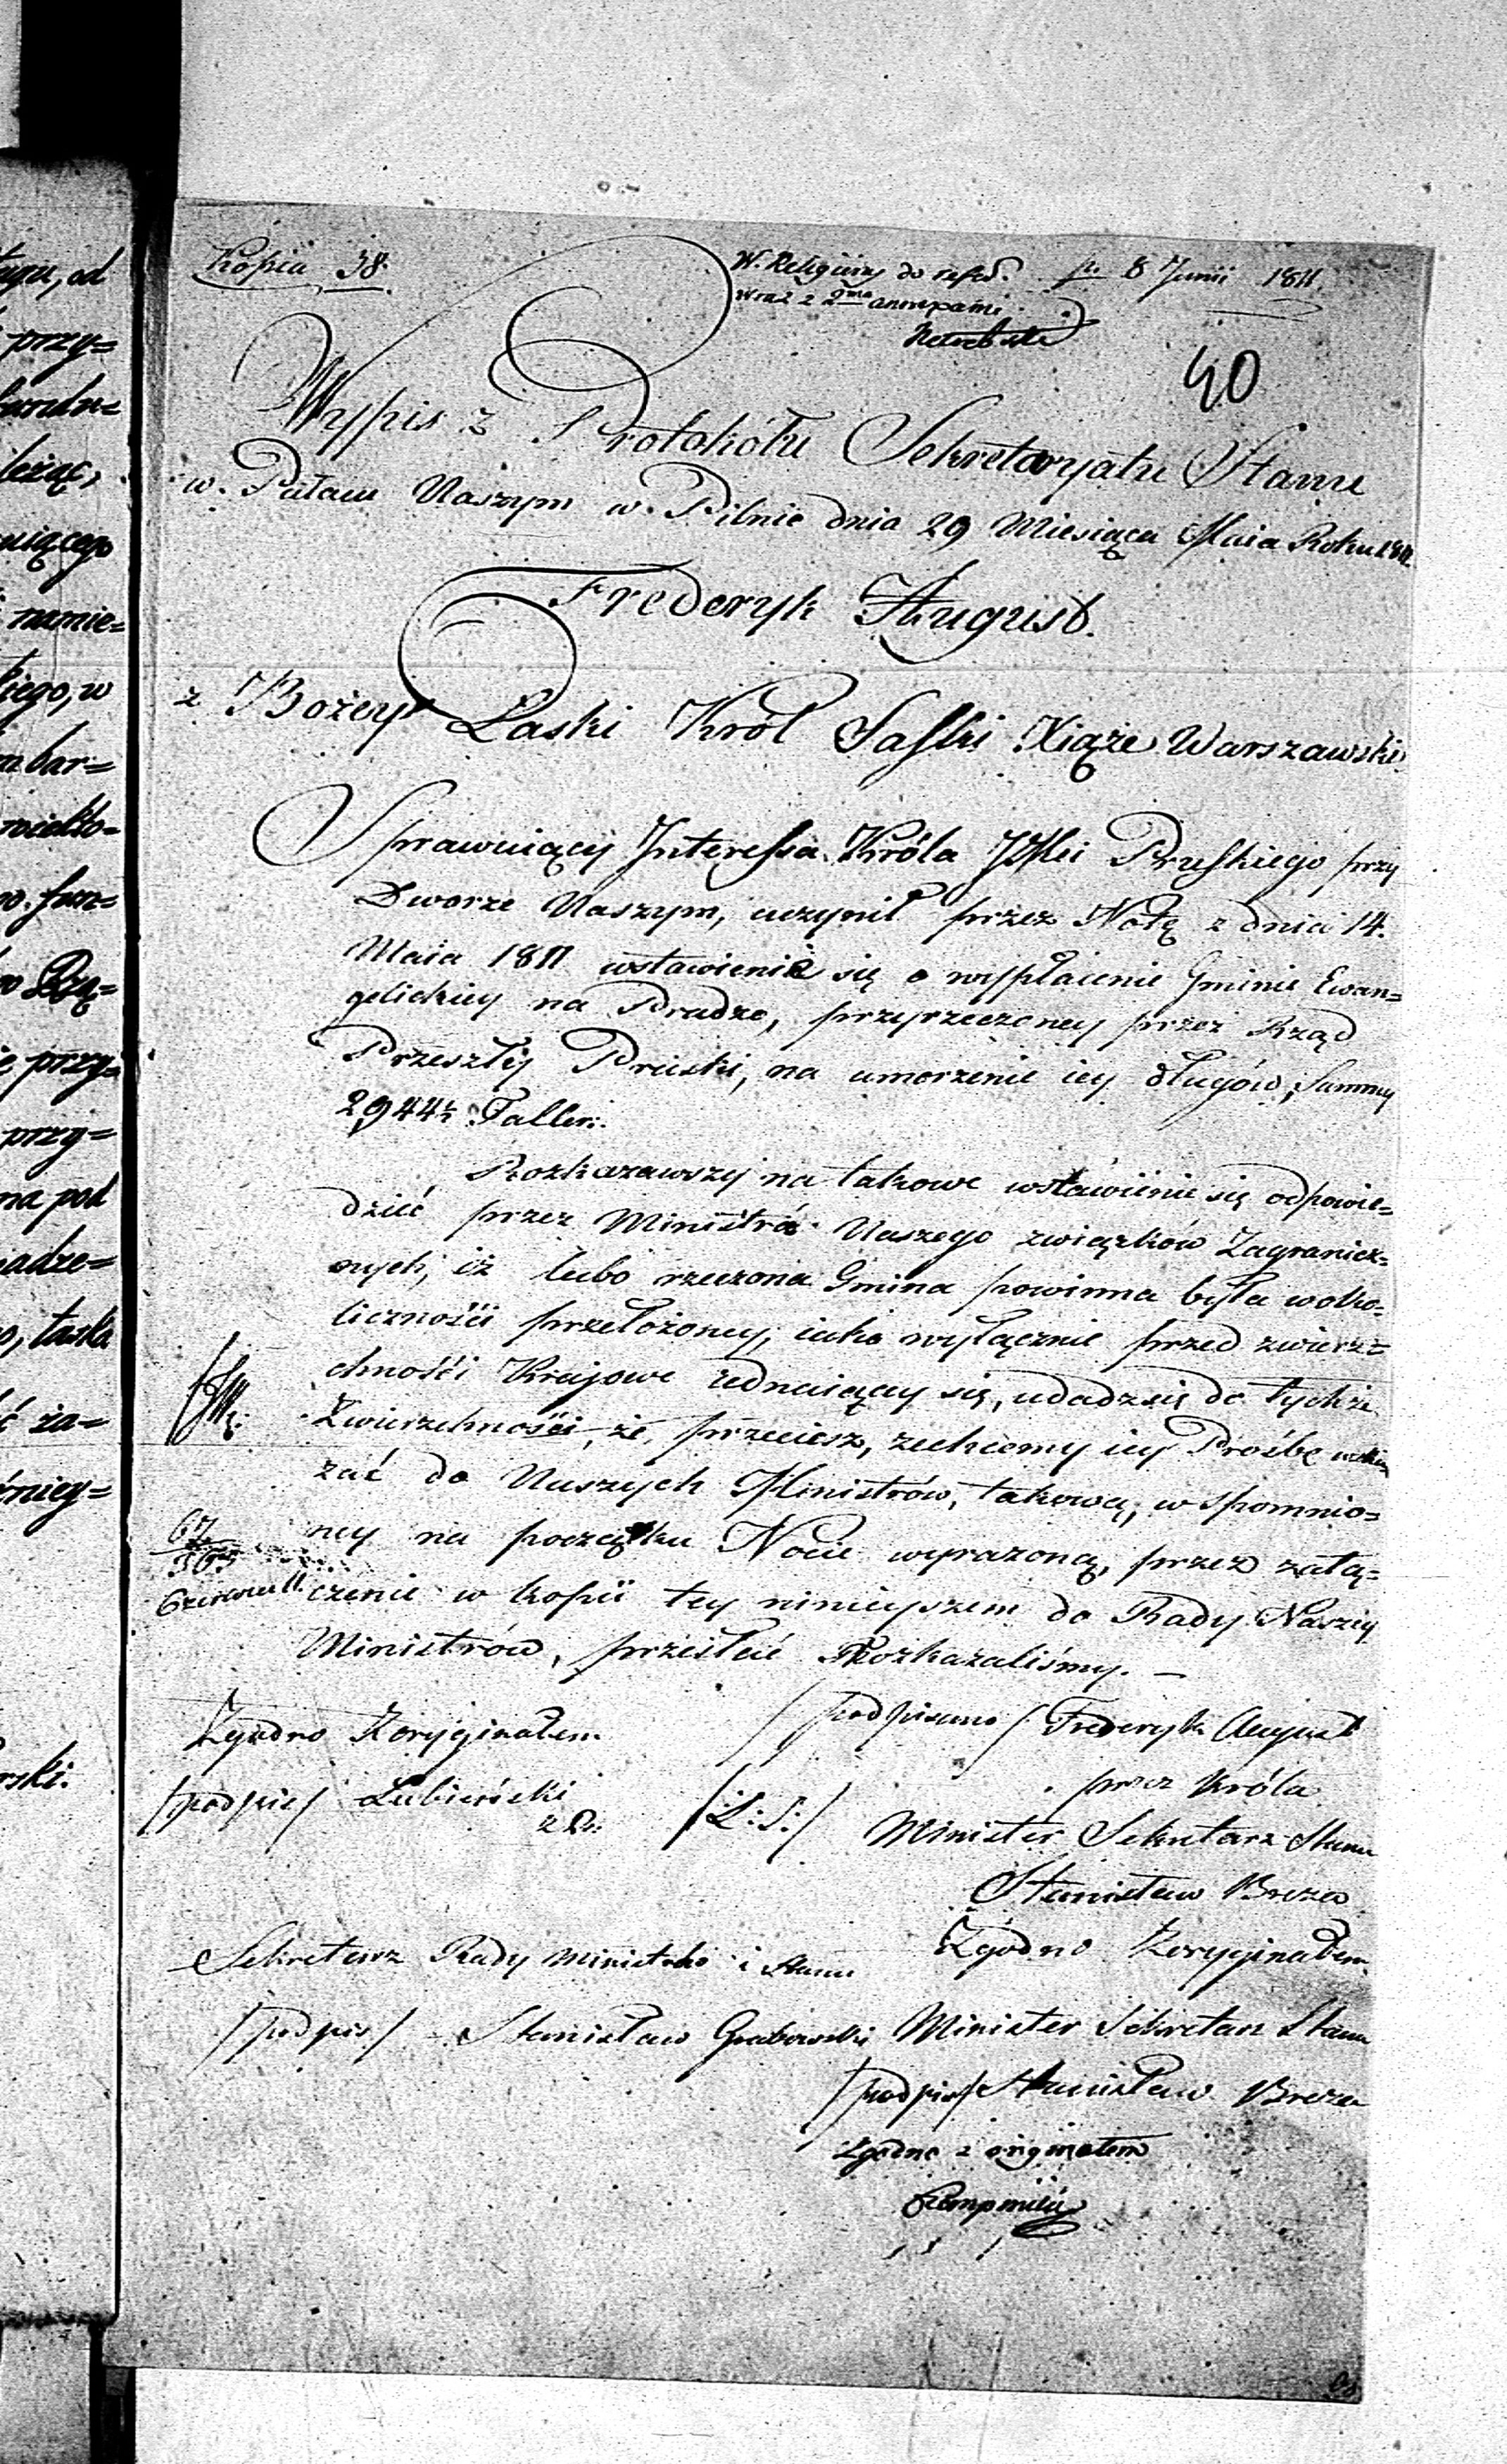 Kopia 38.
W. Religiiny do refer. pr. 8 Junii 1811.
wraz z 2ma annexami
40
Wypis z Protokółu Sekretaryatu Stanu
w. Pałacu Naszym w. Pilnic dnia 29 Miesiąca Maia Roku 1811
Frederyk August.
z Bożey Łaski Król Saski Xiąże Warszawski
Sprawuiący Interessa Króla JMci Pruskiego przy
Dworze Naszym, uczynił przez Notę z dnia 14.
Maia 1811 wstawienie się o wypłacenie Gminie Ewan=
gelickiey na Pradze, przyrzeczoney przez Rząd
Przeszłey Pruski, na umorzenie iey długów, Summy
Taller:
Rozkazawszy na takowe wstawienie się odpowie=
dzieć przez Ministra Naszego związków Zagranicz=
nych, iż lubo rzeczona Gmina powinna była woko=
liczności przełożoney, iako wyłącznie przed zwierz=
chności Kraiowe udać się do tychże
Zwierzchności, że, przeciesz, zechcemy iey Prośbę
zać do Naszych Ministrów, takową, w spomnio=
ney na początku Nocie wyrażoną, przez załą=
czenie w kopii tey ninieyszem do Rady Naszey
67
Czerwca 11.
Ministrów, przesłać Rozkazaliśmy. —
Zgodno Zoryginałem /podpisano/ Frederyk August
przez Króla
/podpis/ Łubieński /:L:S:/ Minister Sekretarz Stanu
Stanisław Breza
Zgodno Zoryginałem
Sekretarz Rady Ministrów i Stanu
/podpis/ Stanisław Grabowski Minister Sekretarz Stanu
/podpis/ Stanisław Breza
Zgodno z originałem